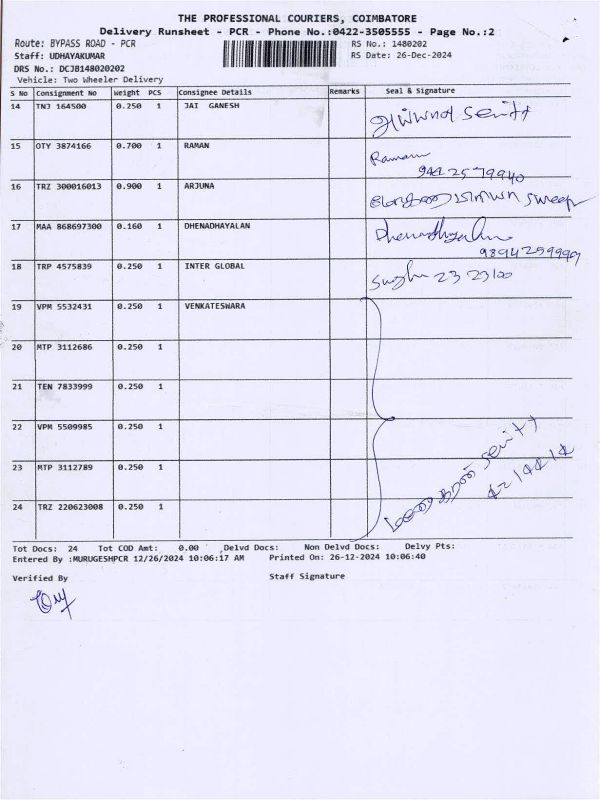 THE PROFESSIONAL COURIERS, COIMBATORE
Delivery Runsheet - PCR - Phone No.:0422-3505555 - Page No.:2
Route: BYPASS ROAD - PCR RS No.: 1480202
Staff: UDHAYAKUMAR RS Date: 26-Dec-2024
DRS No.: DCJB148020202
Vehicle: Two Wheeler Delivery
S No Consignment No Weight PCS Consignee Details Remarks Seal & Signature
14 TNJ 164500 0.250 1 JAI GANESH
15 OTY 3874166 0.700 1 RAMAN Raman
16 TRZ 300016013 0.900 1 ARJUNA
17 MAA 868697300 0.160 1 DHENADHAYALAN Dhenadhayalan
18 TRP 4575839 0.250 1 INTER GLOBAL
19 VPM 5532431 0.250 1 VENKATESWARA
20 MTP 3112686 0.250 1
21 TEN 7833999 0.250 1
22 VPM 5509985 0.250 1
23 MTP 3112789 0.250 1
24 TRZ 220623008 0.250 1
Tot Docs: 24 Tot COD Amt: 0.00 Delvd Docs: Non Delvd Docs: Delvy Pts:
Entered By :MURUGESHPCR 12/26/2024 10:06:17 AM Printed On: 26-12-2024 10:06:40
Verified By Staff Signature